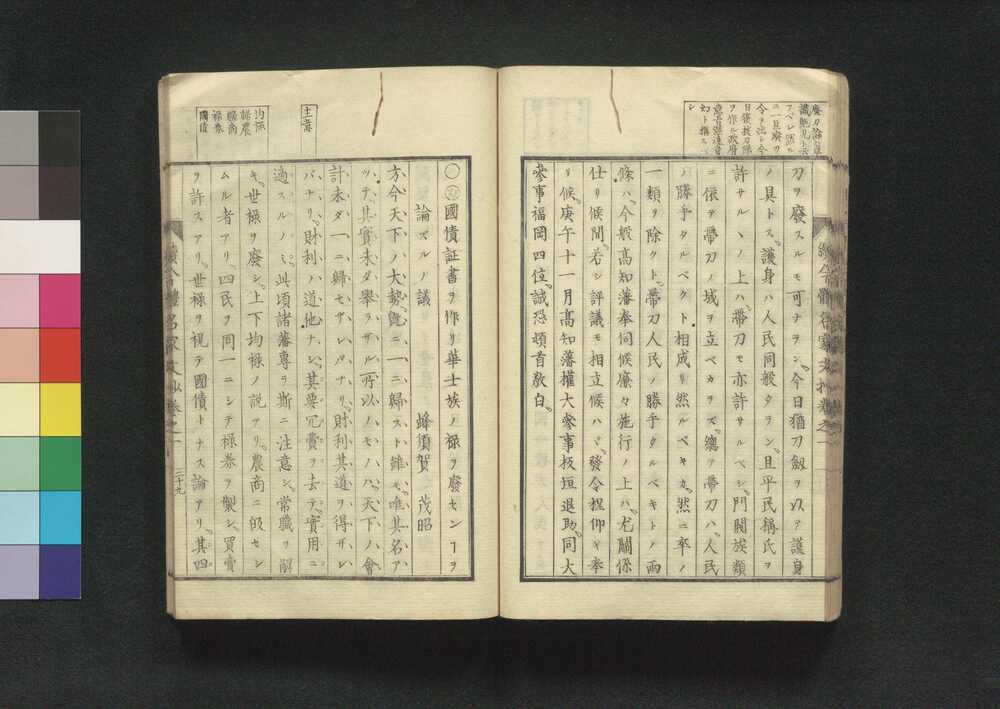 刀ヲ廢スルモ可ナラン今日猶刀劔ヲ以テ護身
ノ具トス護身ハ人民同般タラン且平民稱氏ヲ
許サルヽノ上ハ帶刀モ亦許サルベシ門閥族類
ニ依ヲ帶刀ノ城ヲ立ベカラズ總ヲ帶刀ハ人民
ノ勝手タルベクト相成リ然ルベキカ然ニ卒ノ
一類ヲ除クト帶刀人民ノ勝手タルベキトノ兩
條ハ今般高知藩奉伺候廉々施行ノ上ハ尤關係
仕リ候間若シ評議モ相立候ハヾ發令捏仰ギ奉
リ候庚午十一月高知藩權大參事板垣退助同大
參事福岡四位誠恐頓首敬白
主意
均祿
歸農
歸商
祿券
國債
○國債証書ヲ作リ華士族ノ祿ヲ廢センヿヲ
論ズルノ議 蜂須賀茂昭
方今天下ノ大勢既ニ一ニ歸スト雖モ唯其名ア
ツテ其實未ダ舉ラザル所以ノモノハ天下ノ會
計未ダ一ニ歸セザレバナリ財利其道ヲ得ザレ
バナリ財利ハ道他ナシ其要冗費ヲ去テ實用ニ
適スルノミ此頃諸藩專ラ斯ニ注意シ常職ヲ解
キ世祿ヲ廢シ上下均祿ノ説アリ農商ニ皈セシ
ムル者アリ四民ヲ同一ニシテ祿券ヲ製シ買賣
ヲ許スアリ世祿ヲ視テ國債トナス論アリ其四
二十九